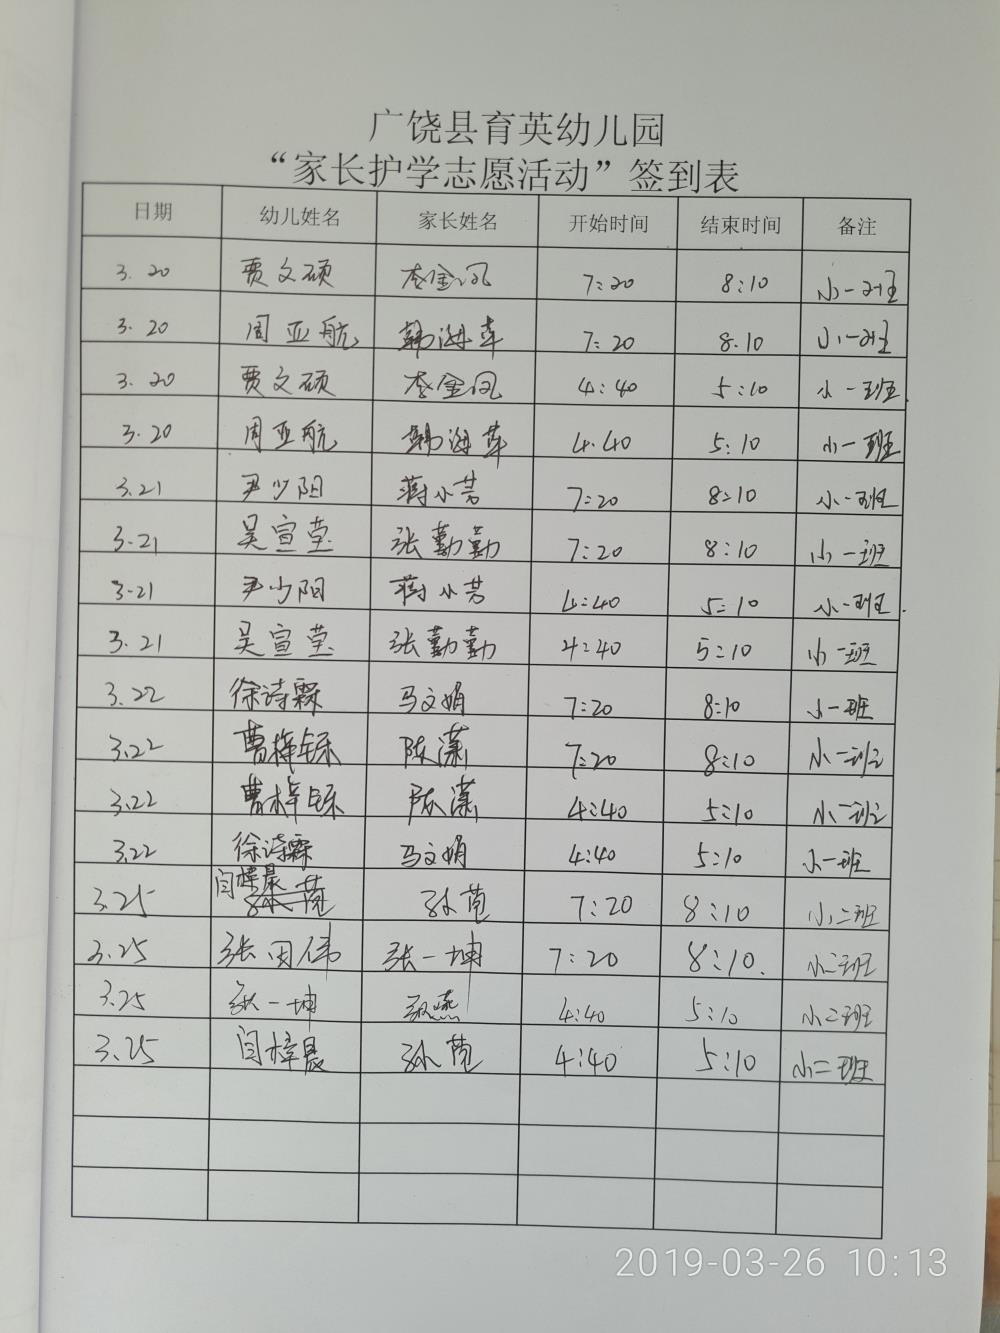 广饶县育英幼儿园
“家长护学志愿活动”签到表
日期 幼儿姓名 家长姓名 开始时间 结束时间 备注
3.20 贾文硕 李金凤 7:20 8:10 小一班
3.20 周亚航 韩海萍 7:20 8.10 小一班
3.20 贾文硕 李金凤 4:40 5:10 小一班
3.20 周亚航 韩海萍 4.40 5:10 小一班
3.21 尹少阳 蒋小芳 7:20 8:10 小一班
3.21 吴宣莹 张勤勤 7:20 8:10 小一班
3.21 尹少阳 蒋小芳 4:40 5:10 小一班
3.21 吴宣莹 张勤勤 4:40 5:10 小一班
3.22 徐诗霖 马文娟 7:20 8:10 小一班
3.22 曹梓铄 陈潇 7:20 8:10 小二班
3.22 曹梓铄 陈潇 4:40 5:10 小二班
3.22 徐诗霖 马文娟 4:40 5:10 小一班
3.25 闫梓晨 孙苑 7:20 8:10 小二班
3.25 张一坤 7:20 8:10. 小二班
3.25 张一坤 4:40 5:10 小二班
3.25 闫梓晨 孙苑 4:40 5:10 小二班
2019-03-26 10:13